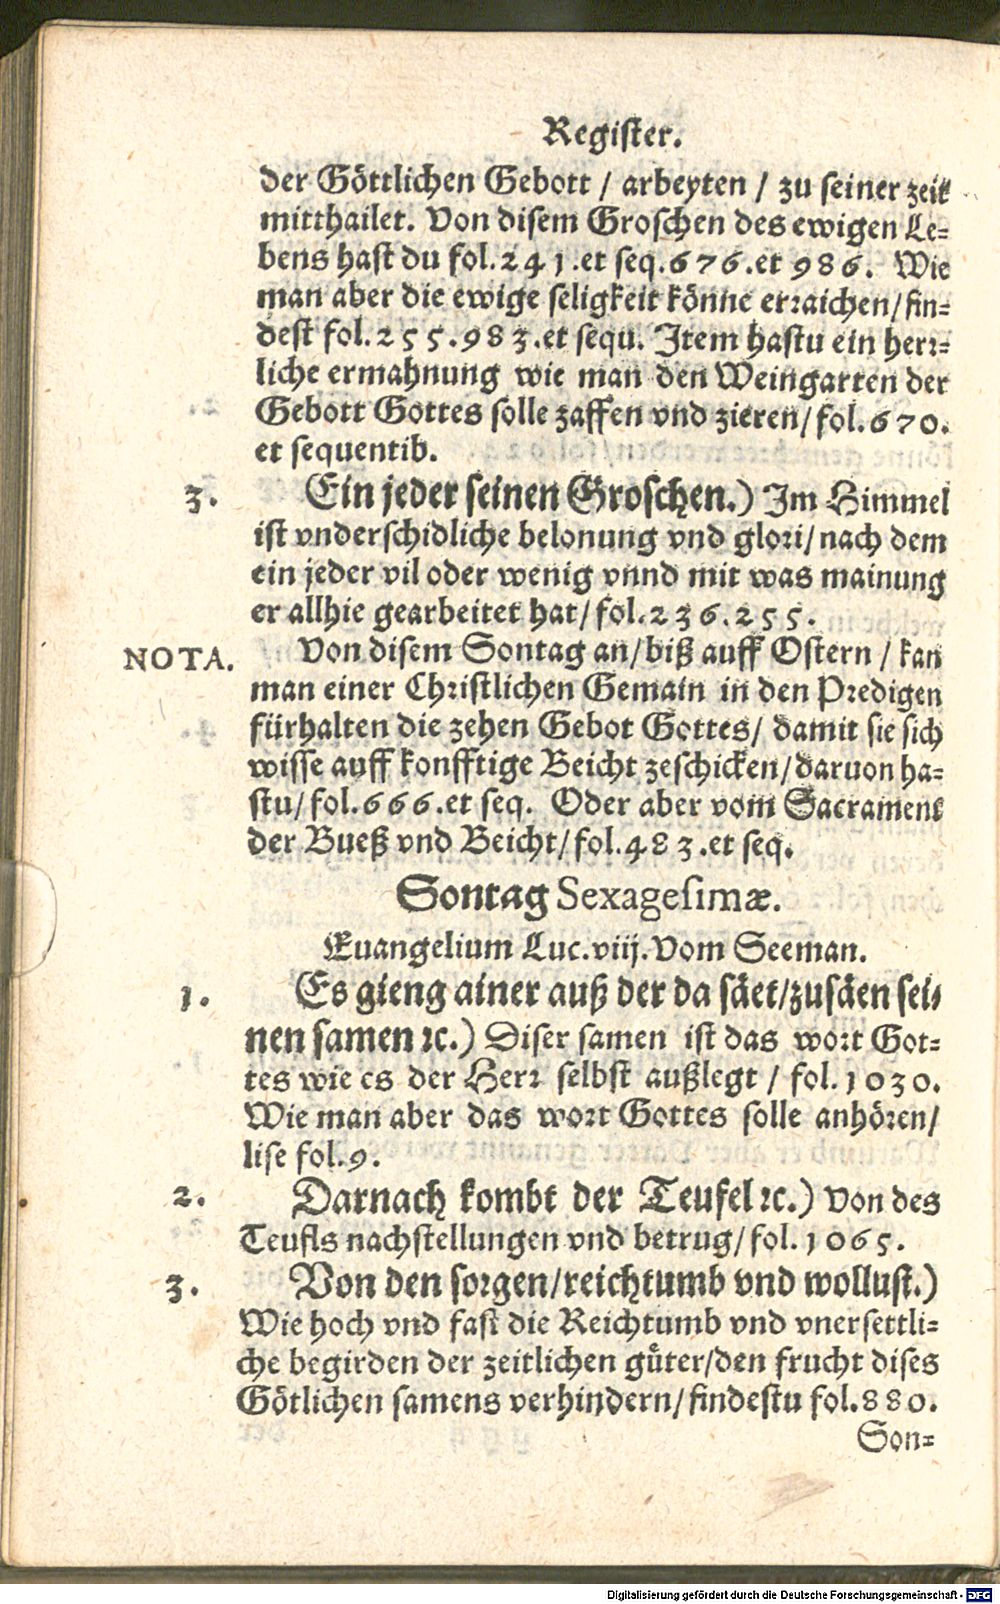 Register.
der Göttlichen Gebott / arbeyten / zu seiner zeit
mitthailet. Von disem Groschen des ewigen Le-
bens hast du fol. 241. et seq. 676. et 986. Wie
man aber die ewige seligkeit könne erraichen / fin-
dest fol. 255. 983. et sequ. Item hastu ein herr-
liche ermahnung wie man den Weingarten der
Gebott Gottes solle zaffen vnd zieren / fol. 670.
et sequentib.
3. Ein jeder seinen Groschen.) Im Himmel
ist vnderschidliche belonung vnd glori / nach dem
ein jeder vil oder wenig vnnd mit was mainung
er allhie gearbeitet hat / fol. 236. 255.
NOTA. Von disem Sontag an / biß auff Ostern / kan
man einer Christlichen Gemain in den Predigen
fürhalten die zehen Gebot Gottes / damit sie sich
wisse auff konfftige Beicht zeschicken / daruon ha-
stu / fol. 666. et seq. Oder aber vom Sacrament
der Bueß vnd Beicht / fol. 483. et seq.
Sontag Sexagesimæ.
Euangelium Luc. viij. Vom Seeman.
1. Es gieng ainer auß der da säet / zusäen sei-
nen samen ꝛc.) Diser samen ist das wort Got-
tes wie es der Herr selbst außlegt / fol. 1030.
Wie man aber das wort Gottes solle anhören /
lise fol. 9.
2. Darnach kombt der Teufel ꝛc.) Von des
Teufls nachstellungen vnd betrug / fol. 1065.
3. Von den sorgen / reichtumb vnd wollust.)
Wie hoch vnd fast die Reichtumb vnd vnersettli-
che begirden der zeitlichen güter / den frucht dises
Götlichen samens verhindern / findestu fol. 880.
Son-
Digitalisierung gefördert durch die Deutsche Forschungsgemeinschaft - DFG